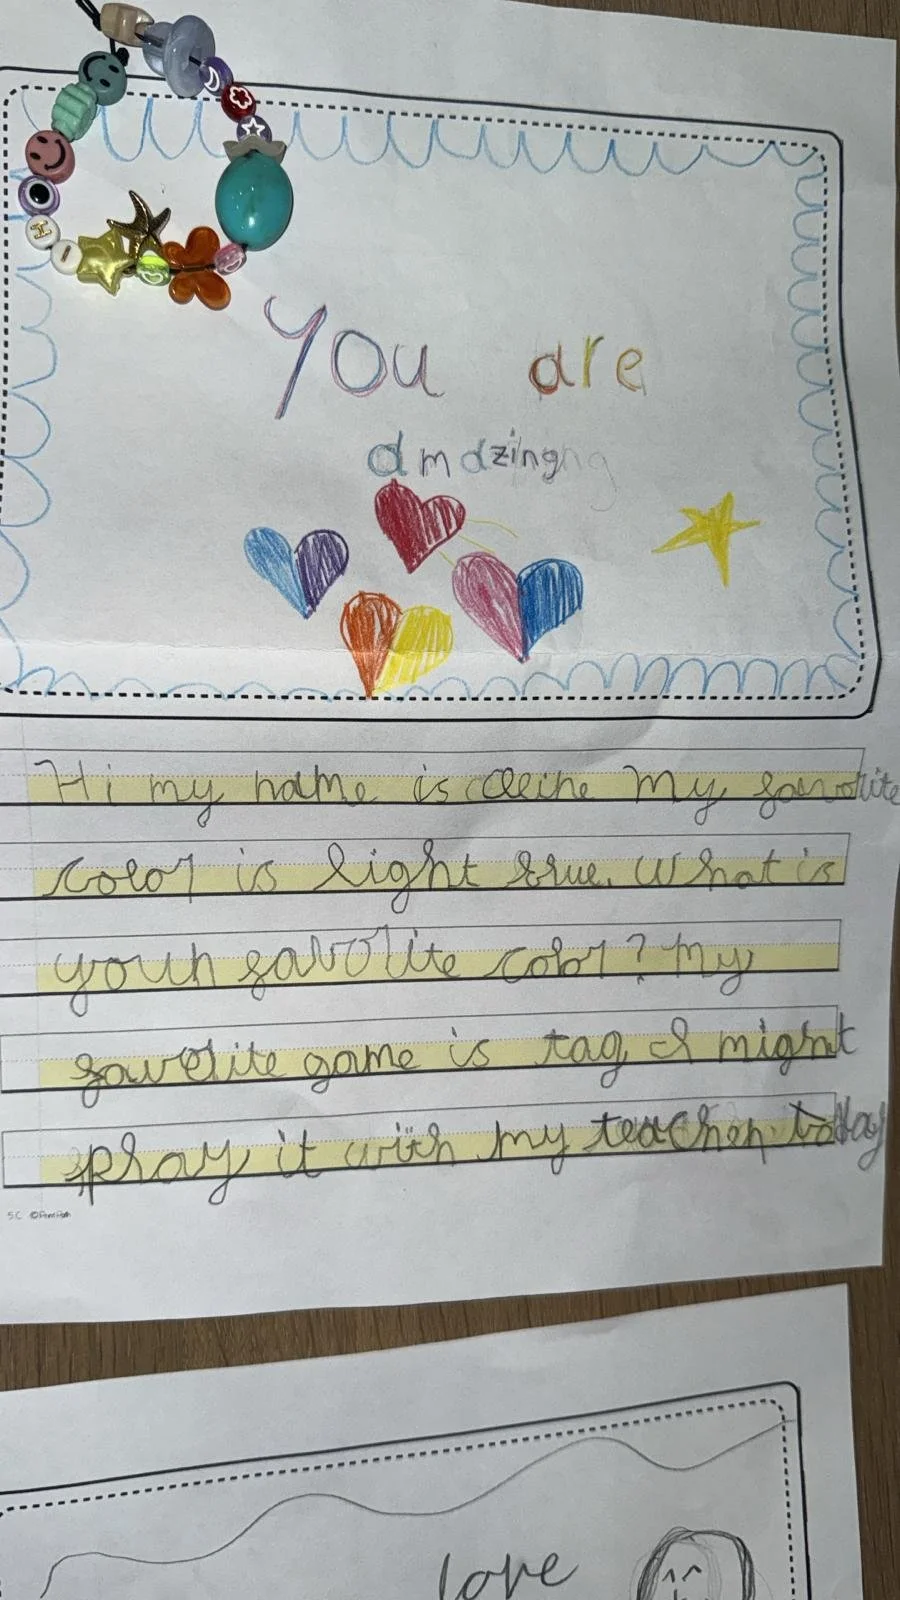 You are
amazing
Hi my name is My favorite
color is light blue. What is
your favorite color? My
favorite game is tag I might
play it with my teacher today
S.C ©
love